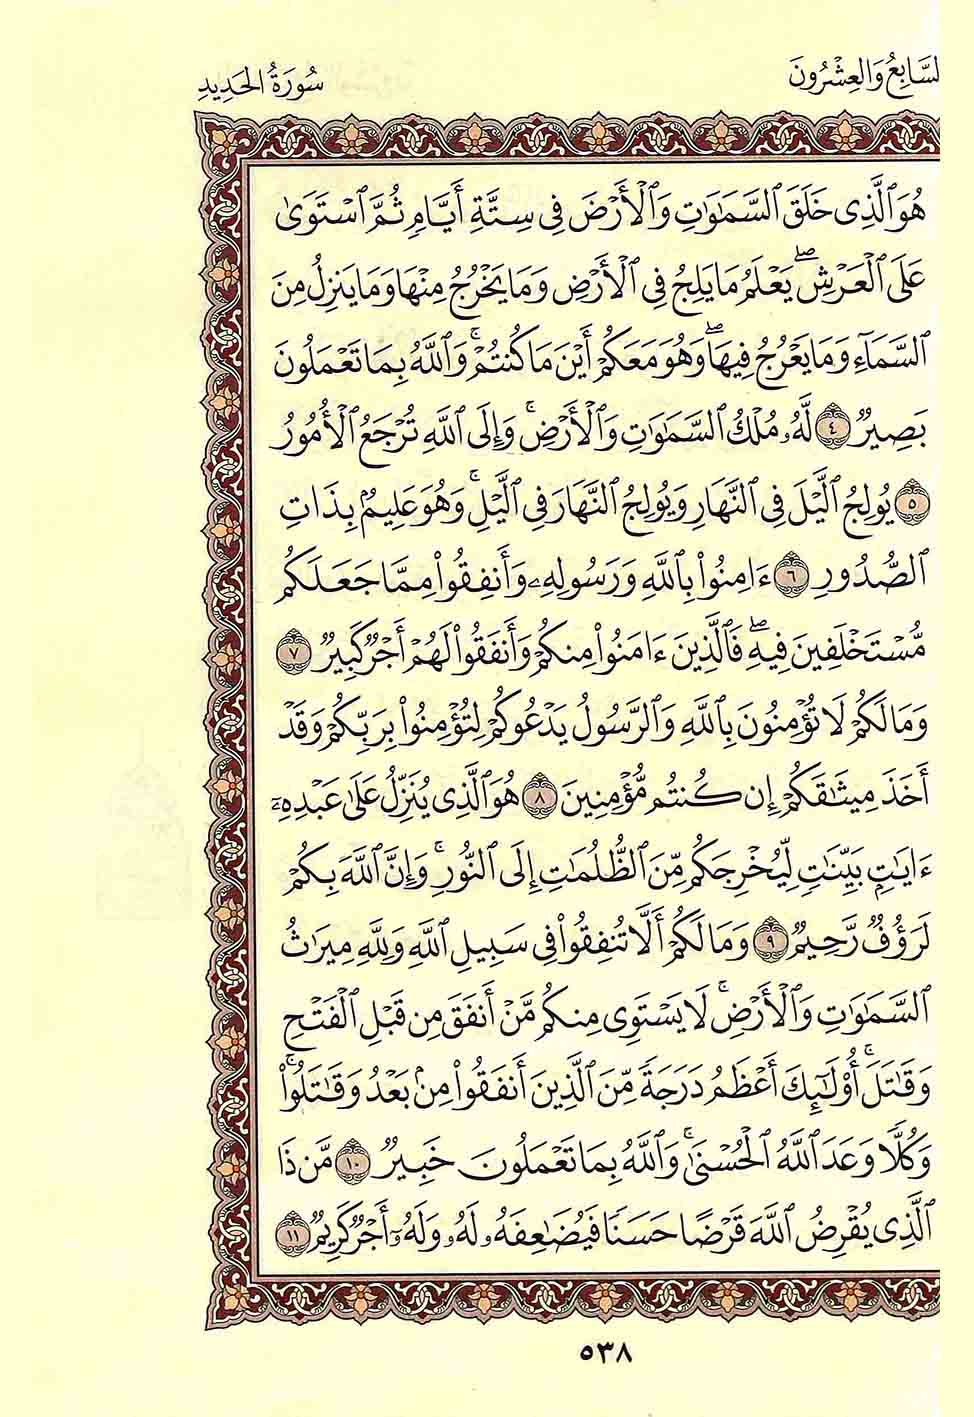 لسَّابِعُ وَالعِشْرُونَ
سُورَةُ الحَدِيدِ
هُوَ ٱلَّذِى خَلَقَ ٱلسَّمَٰوَٰتِ وَٱلْأَرْضَ فِى سِتَّةِ أَيَّامٍ ثُمَّ ٱسْتَوَىٰ
عَلَى ٱلْعَرْشِۖ يَعْلَمُ مَا يَلِجُ فِى ٱلْأَرْضِ وَمَا يَخْرُجُ مِنْهَا وَمَا يَنزِلُ مِنَ
ٱلسَّمَآءِ وَمَا يَعْرُجُ فِيهَاۖ وَهُوَ مَعَكُمْ أَيْنَ مَا كُنتُمْۚ وَٱللَّهُ بِمَا تَعْمَلُونَ
بَصِيرٌ ٤ لَّهُۥ مُلْكُ ٱلسَّمَٰوَٰتِ وَٱلْأَرْضِۚ وَإِلَى ٱللَّهِ تُرْجَعُ ٱلْأُمُورُ
٥ يُولِجُ ٱلَّيْلَ فِى ٱلنَّهَارِ وَيُولِجُ ٱلنَّهَارَ فِى ٱلَّيْلِۚ وَهُوَ عَلِيمٌۢ بِذَاتِ
ٱلصُّدُورِ ٦ ءَامِنُوا۟ بِٱللَّهِ وَرَسُولِهِۦ وَأَنفِقُوا۟ مِمَّا جَعَلَكُم
مُّسْتَخْلَفِينَ فِيهِۖ فَٱلَّذِينَ ءَامَنُوا۟ مِنكُمْ وَأَنفَقُوا۟ لَهُمْ أَجْرٌ كَبِيرٌ ٧
وَمَا لَكُمْ لَا تُؤْمِنُونَ بِٱللَّهِ وَٱلرَّسُولُ يَدْعُوكُمْ لِتُؤْمِنُوا۟ بِرَبِّكُمْ وَقَدْ
أَخَذَ مِيثَٰقَكُمْ إِن كُنتُم مُّؤْمِنِينَ ٨ هُوَ ٱلَّذِى يُنَزِّلُ عَلَىٰ عَبْدِهِۦٓ
ءَايَٰتٍۭ بَيِّنَٰتٍ لِّيُخْرِجَكُم مِّنَ ٱلظُّلُمَٰتِ إِلَى ٱلنُّورِۚ وَإِنَّ ٱللَّهَ بِكُمْ
لَرَؤُفٌ رَّحِيمٌ ٩ وَمَا لَكُمْ أَلَّا تُنفِقُوا۟ فِى سَبِيلِ ٱللَّهِ وَلِلَّهِ مِيرَٰثُ
ٱلسَّمَٰوَٰتِ وَٱلْأَرْضِۚ لَا يَسْتَوِى مِنكُم مَّنْ أَنفَقَ مِن قَبْلِ ٱلْفَتْحِ
وَقَٰتَلَۚ أُو۟لَٰٓئِكَ أَعْظَمُ دَرَجَةً مِّنَ ٱلَّذِينَ أَنفَقُوا۟ مِنۢ بَعْدُ وَقَٰتَلُوا۟ۚ
وَكُلًّا وَعَدَ ٱللَّهُ ٱلْحُسْنَىٰۚ وَٱللَّهُ بِمَا تَعْمَلُونَ خَبِيرٌ ١٠ مَّن ذَا
ٱلَّذِى يُقْرِضُ ٱللَّهَ قَرْضًا حَسَنًا فَيُضَٰعِفَهُۥ لَهُۥ وَلَهُۥٓ أَجْرٌ كَرِيمٌ ١١
٥٣٨